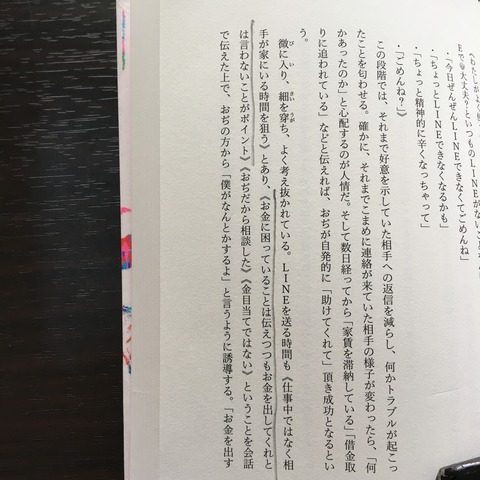 ・「今日ぜんぜんLINEできなくてごめんね」
・「ちょっとLINEできなくなるかも」
・「ちょっと精神的に辛くなっちゃって」
・「ごめんね？」》
この段階では、それまで好意を示していた相手への返信を減らし、何かトラブルが起こっ
たことを匂わせる。確かに、それまでこまめに連絡が来ていた相手の様子が変わったら、「何
かあったのか」と心配するのが人情だ。そして数日経ってから「家賃を滞納している」「借金取
りに追われている」などと伝えれば、おぢが自発的に「助けてくれて」頂き成功となるとい
う。
微に入り、細を穿ち、よく考え抜かれている。LINEを送る時間も《仕事中ではなく相
手が家にいる時間を狙う》とあり、《お金に困っていることは伝えつつもお金を出してくれと
は言わないことがポイント》《おぢだから相談した》《金目当てではない》ということを会話
で伝えた上で、おぢの方から「僕がなんとかするよ」と言うように誘導する。「お金を出す